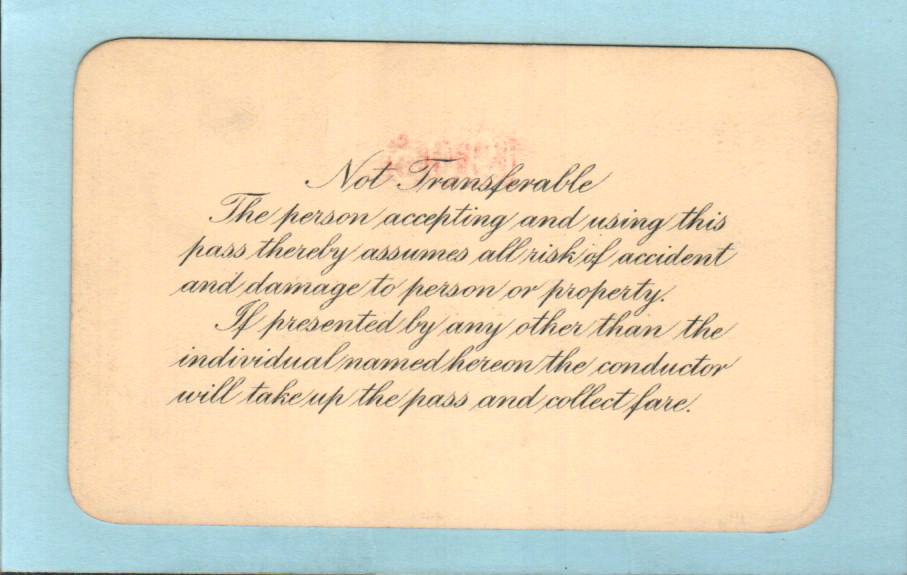 Not Transferable
The person accepting and using this
pass thereby assumes all risk of accident
and damage to person or property.
If presented by any other than the
individual named hereon the conductor
will take up the pass and collect fare.